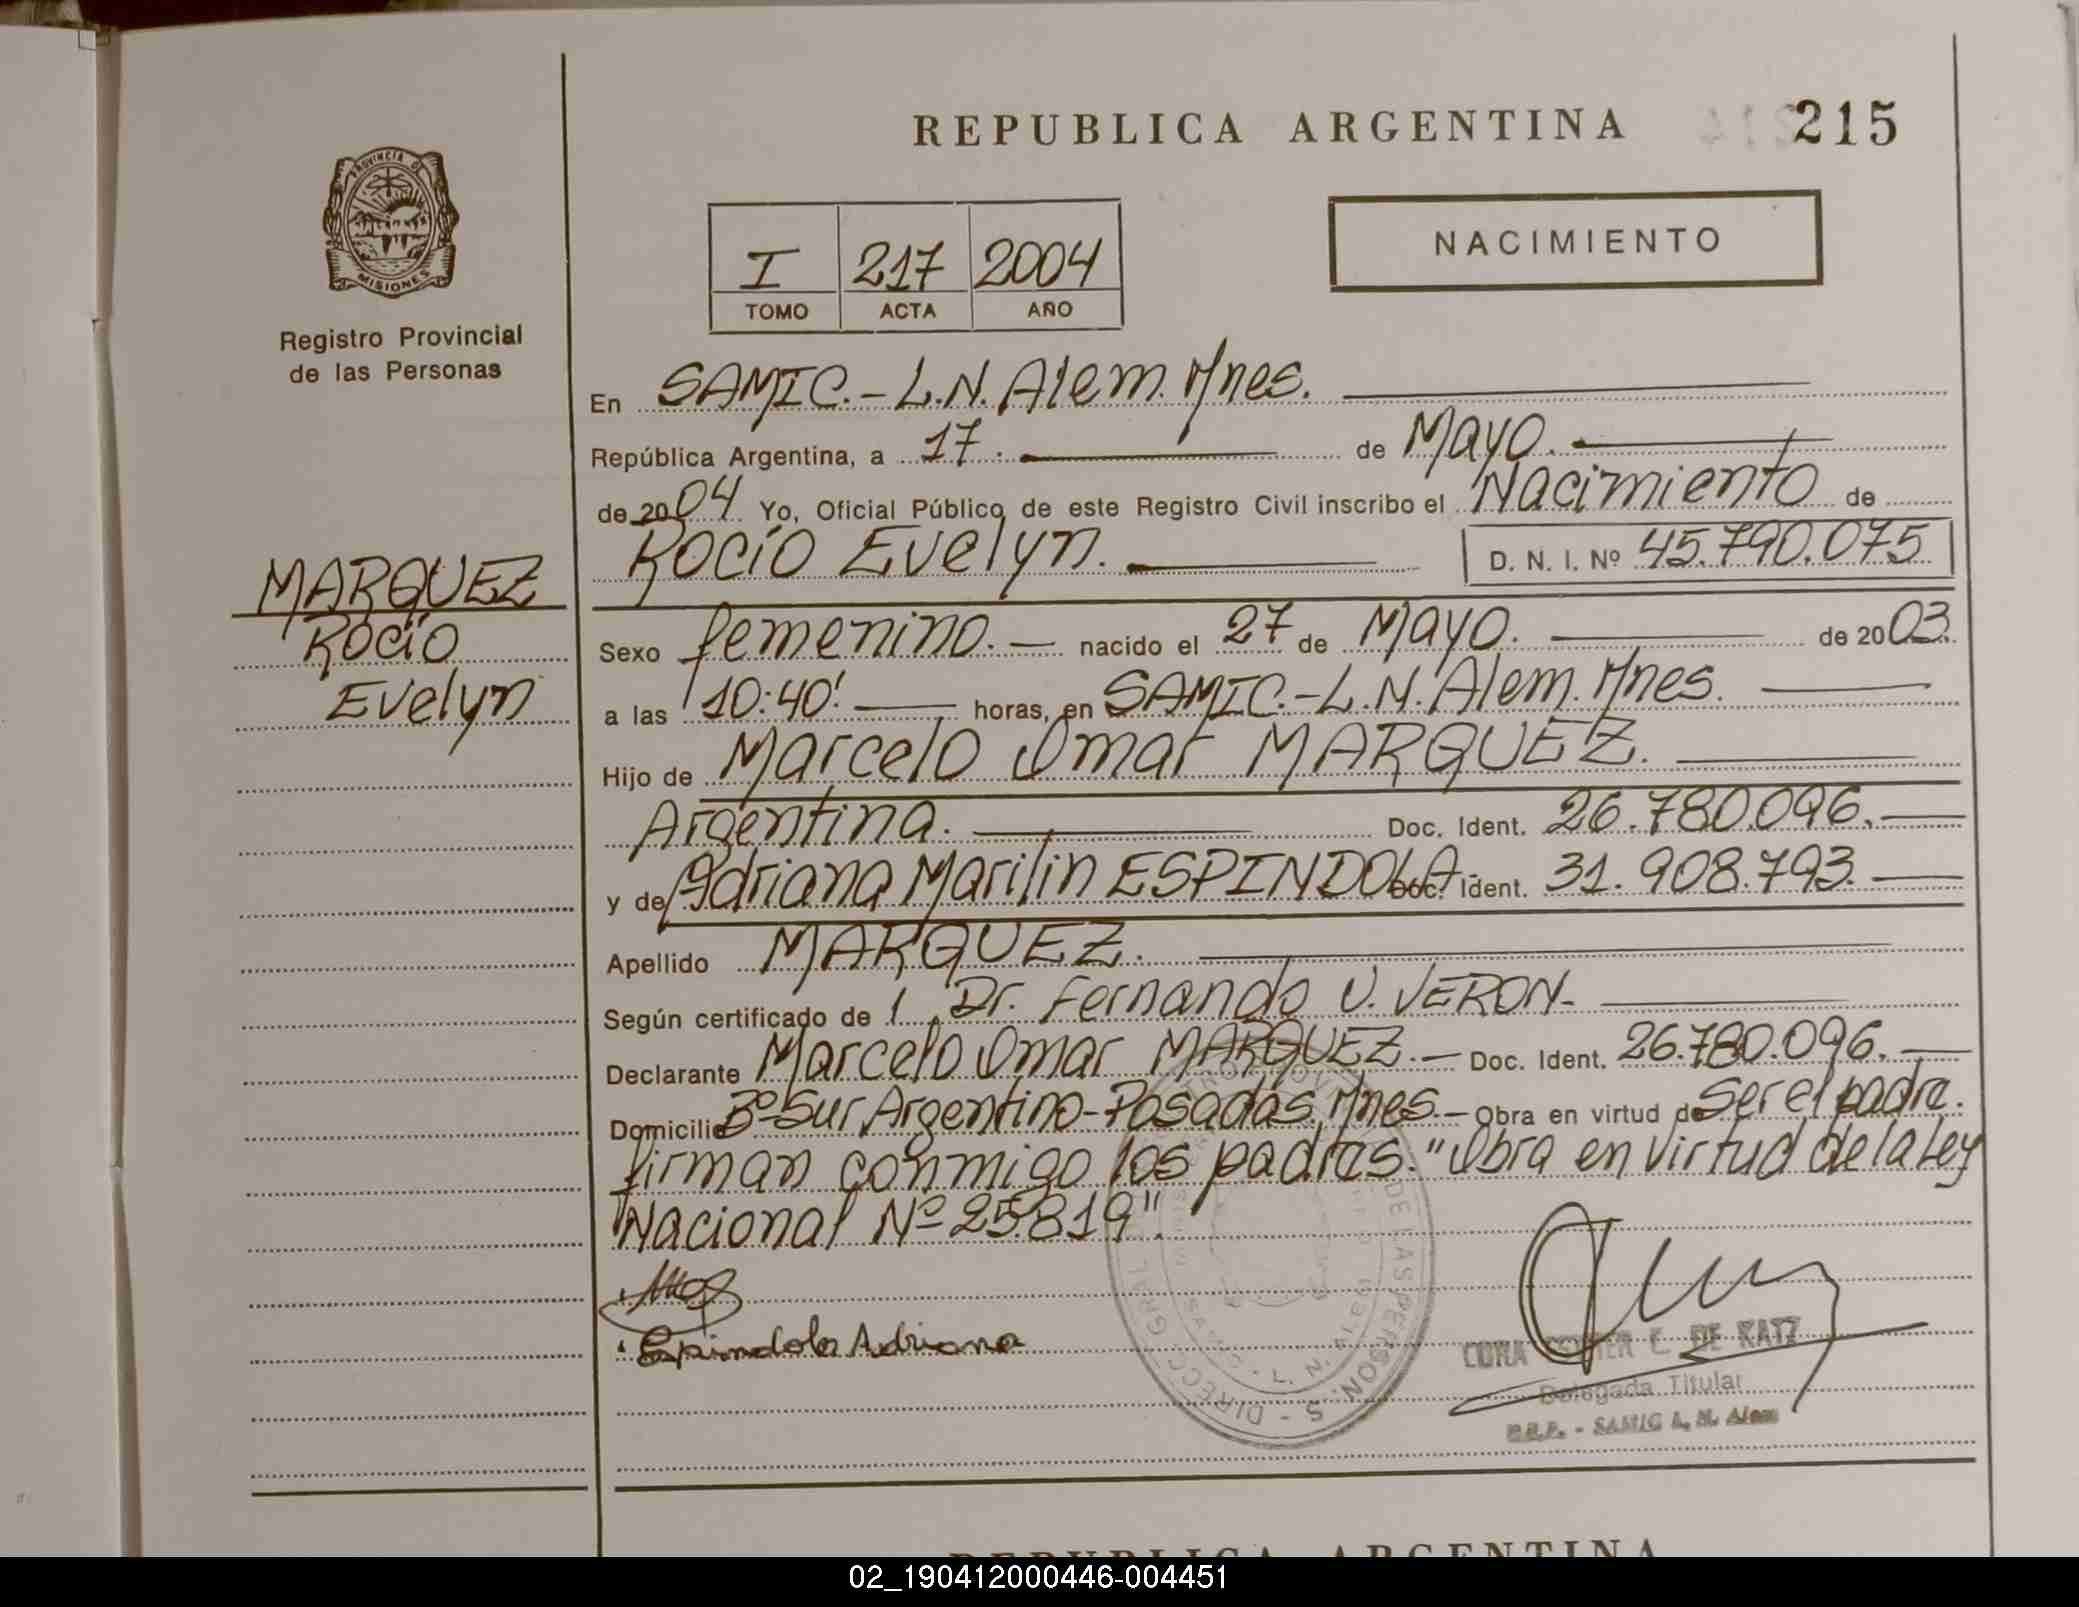 REPUBLICA ARGENTINA 215
PROVINCIA DE MISIONES
Registro Provincial
de las Personas
I 217 2004
TOMO ACTA AÑO
NACIMIENTO
En SAMIC.- L.N. Alem. Mnes.
República Argentina, a 17. de Mayo.
de 2004 Yo, Oficial Público de este Registro Civil inscribo el Nacimiento de
Rocío Evelyn. D. N. I. Nº 45.790.075
MARQUEZ
Rocío
Evelyn
Sexo femenino.- nacido el 27 de Mayo. de 2003.
a las 10:40' horas, en SAMIC.- L.N. Alem. Mnes.
Hijo de Marcelo Omar MARQUEZ.
Argentina. Doc. Ident. 26.780.096.
y de Adriana Marilin ESPINDOLA Doc. Ident. 31.908.793.
Apellido MARQUEZ.
Según certificado de 1 Dr. Fernando U. VERON-
Declarante Marcelo Omar MARQUEZ.- Doc. Ident. 26.780.096.
Domicilio Bº Sur Argentino-Posadas, Mnes.- Obra en virtud de ser el padre.
firman conmigo los padres. "Obra en virtud de la Ley
Nacional Nº 25.819".
Espindola Adriana
C. DE KATZ
Delegada Titular
SAMIC L. N. Alem
REPUBLICA ARGENTINA
02_190412000446-004451